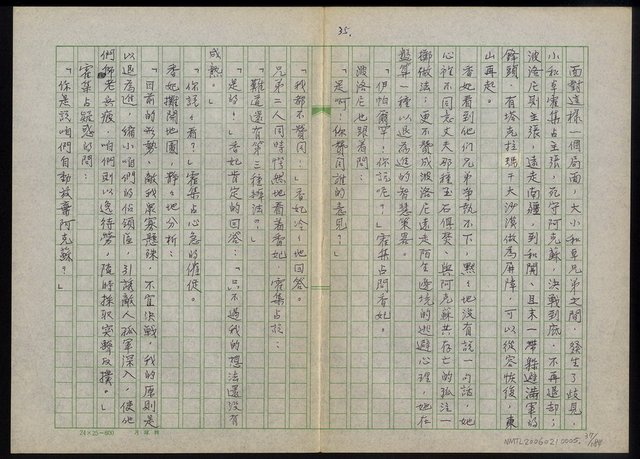 35.
面對這樣一個局面，大小和卓兄弟之間，發生了歧見，
小和卓霍集占主張，死守阿克蘇，決戰到底，不再退却；
波洛尼則主張，遠走南疆，到和闐、且末一帶躲避滿軍的
鋒頭，有塔克拉瑪干大沙漠做為屏障，可以從容恢復，東
山再起。
香妃看到他們兄弟爭執不下，默默地沒有說一句話，她
心裡不同意丈夫那種玉石俱焚、與阿克蘇共存亡的孤注一
擲做法；更不贊成波洛尼遠走陌生邊境的逃避心理，她在
盤算一種以退為進的智慧策畧。
「伊帕爾罕，你說呢？」霍集占問香妃。
波洛尼也跟着問：
「是啊！你贊同誰的意見？」
「我都不贊同。」香妃冷冷地回答。
兄弟二人同時愕然地看着香妃，霍集占說：
「難道還有第三種辦法？」
「是的！」香妃肯定的回答：「只不過我的想法還沒有
成熟。」
「你說說看？」霍集占心急的催促。
香妃攤開地圖，靜靜地分析：
「目前的形勢，敵我眾寡懸殊，不宜決戰，我的原則是
以退為進，縮小咱們的佔領區，引誘敵人孤軍深入，使他
們師老兵疲，咱們則以逸待勞，隨時採取突擊反撲。」
霍集占疑惑的問：
「你是說咱們自動放棄阿克蘇？」
24×25=600
NMTL20060210005.